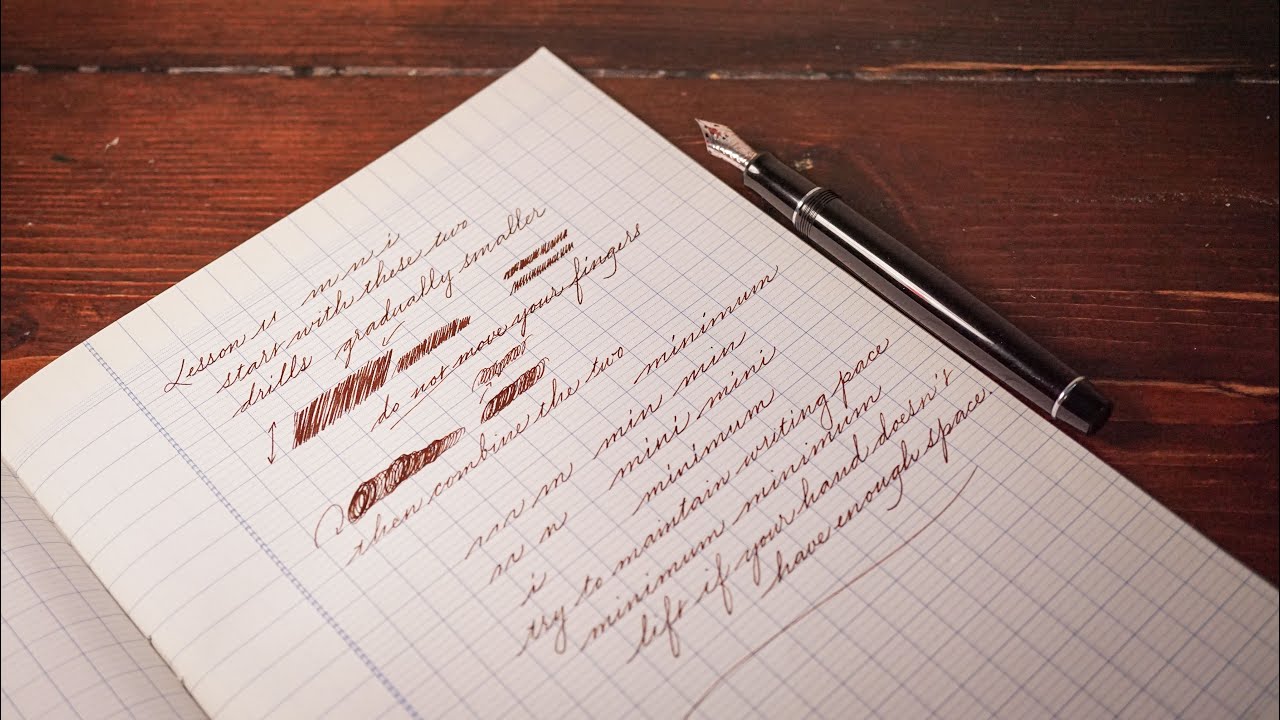 Lesson 11 m n i
start with these two
drills gradually smaller
do not move your fingers
then combine the two
minimum
m m min min
n n mini mini
i minimum
try to maintain writing pace
minimum minimum
left if your hand doesn't
have enough space.